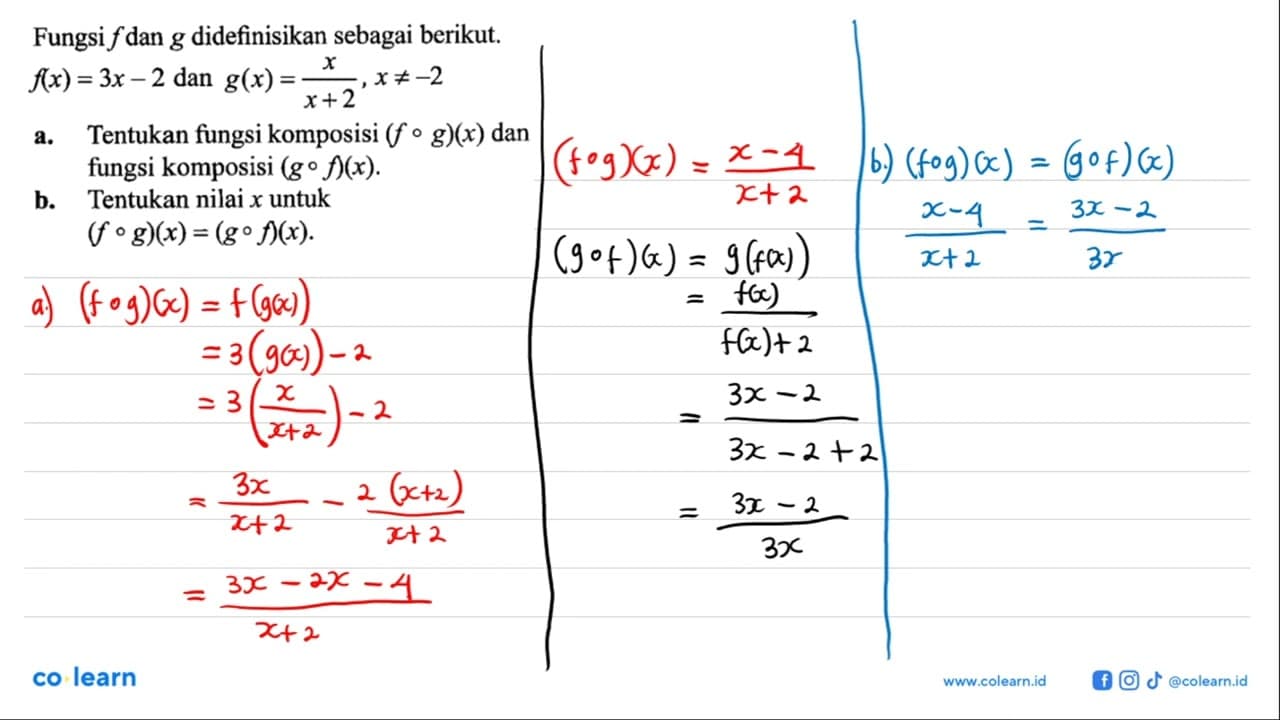 Fungsi f dan g didefinisikan sebagai berikut.
f(x) = 3x – 2 dan g(x) = x/(x + 2), x ≠ –2
a. Tentukan fungsi komposisi (f ∘ g)(x) dan
fungsi komposisi (g ∘ f)(x).
b. Tentukan nilai x untuk
(f ∘ g)(x) = (g ∘ f)(x).
a.) (f∘g)(x) = f(g(x))
= 3(g(x)) – 2
= 3(x/(x+2)) – 2
= 3x/(x+2) – 2(x+2)/(x+2)
= (3x – 2x – 4)/(x+2)
(f∘g)(x) = (x – 4)/(x + 2)
(g∘f)(x) = g(f(x))
= f(x)/(f(x)+2)
= (3x – 2)/(3x – 2 + 2)
= (3x – 2)/3x
b.) (f∘g)(x) = (g∘f)(x)
(x–4)/(x+2) = (3x – 2)/3x
co·learn
www.colearn.id
@colearn.id